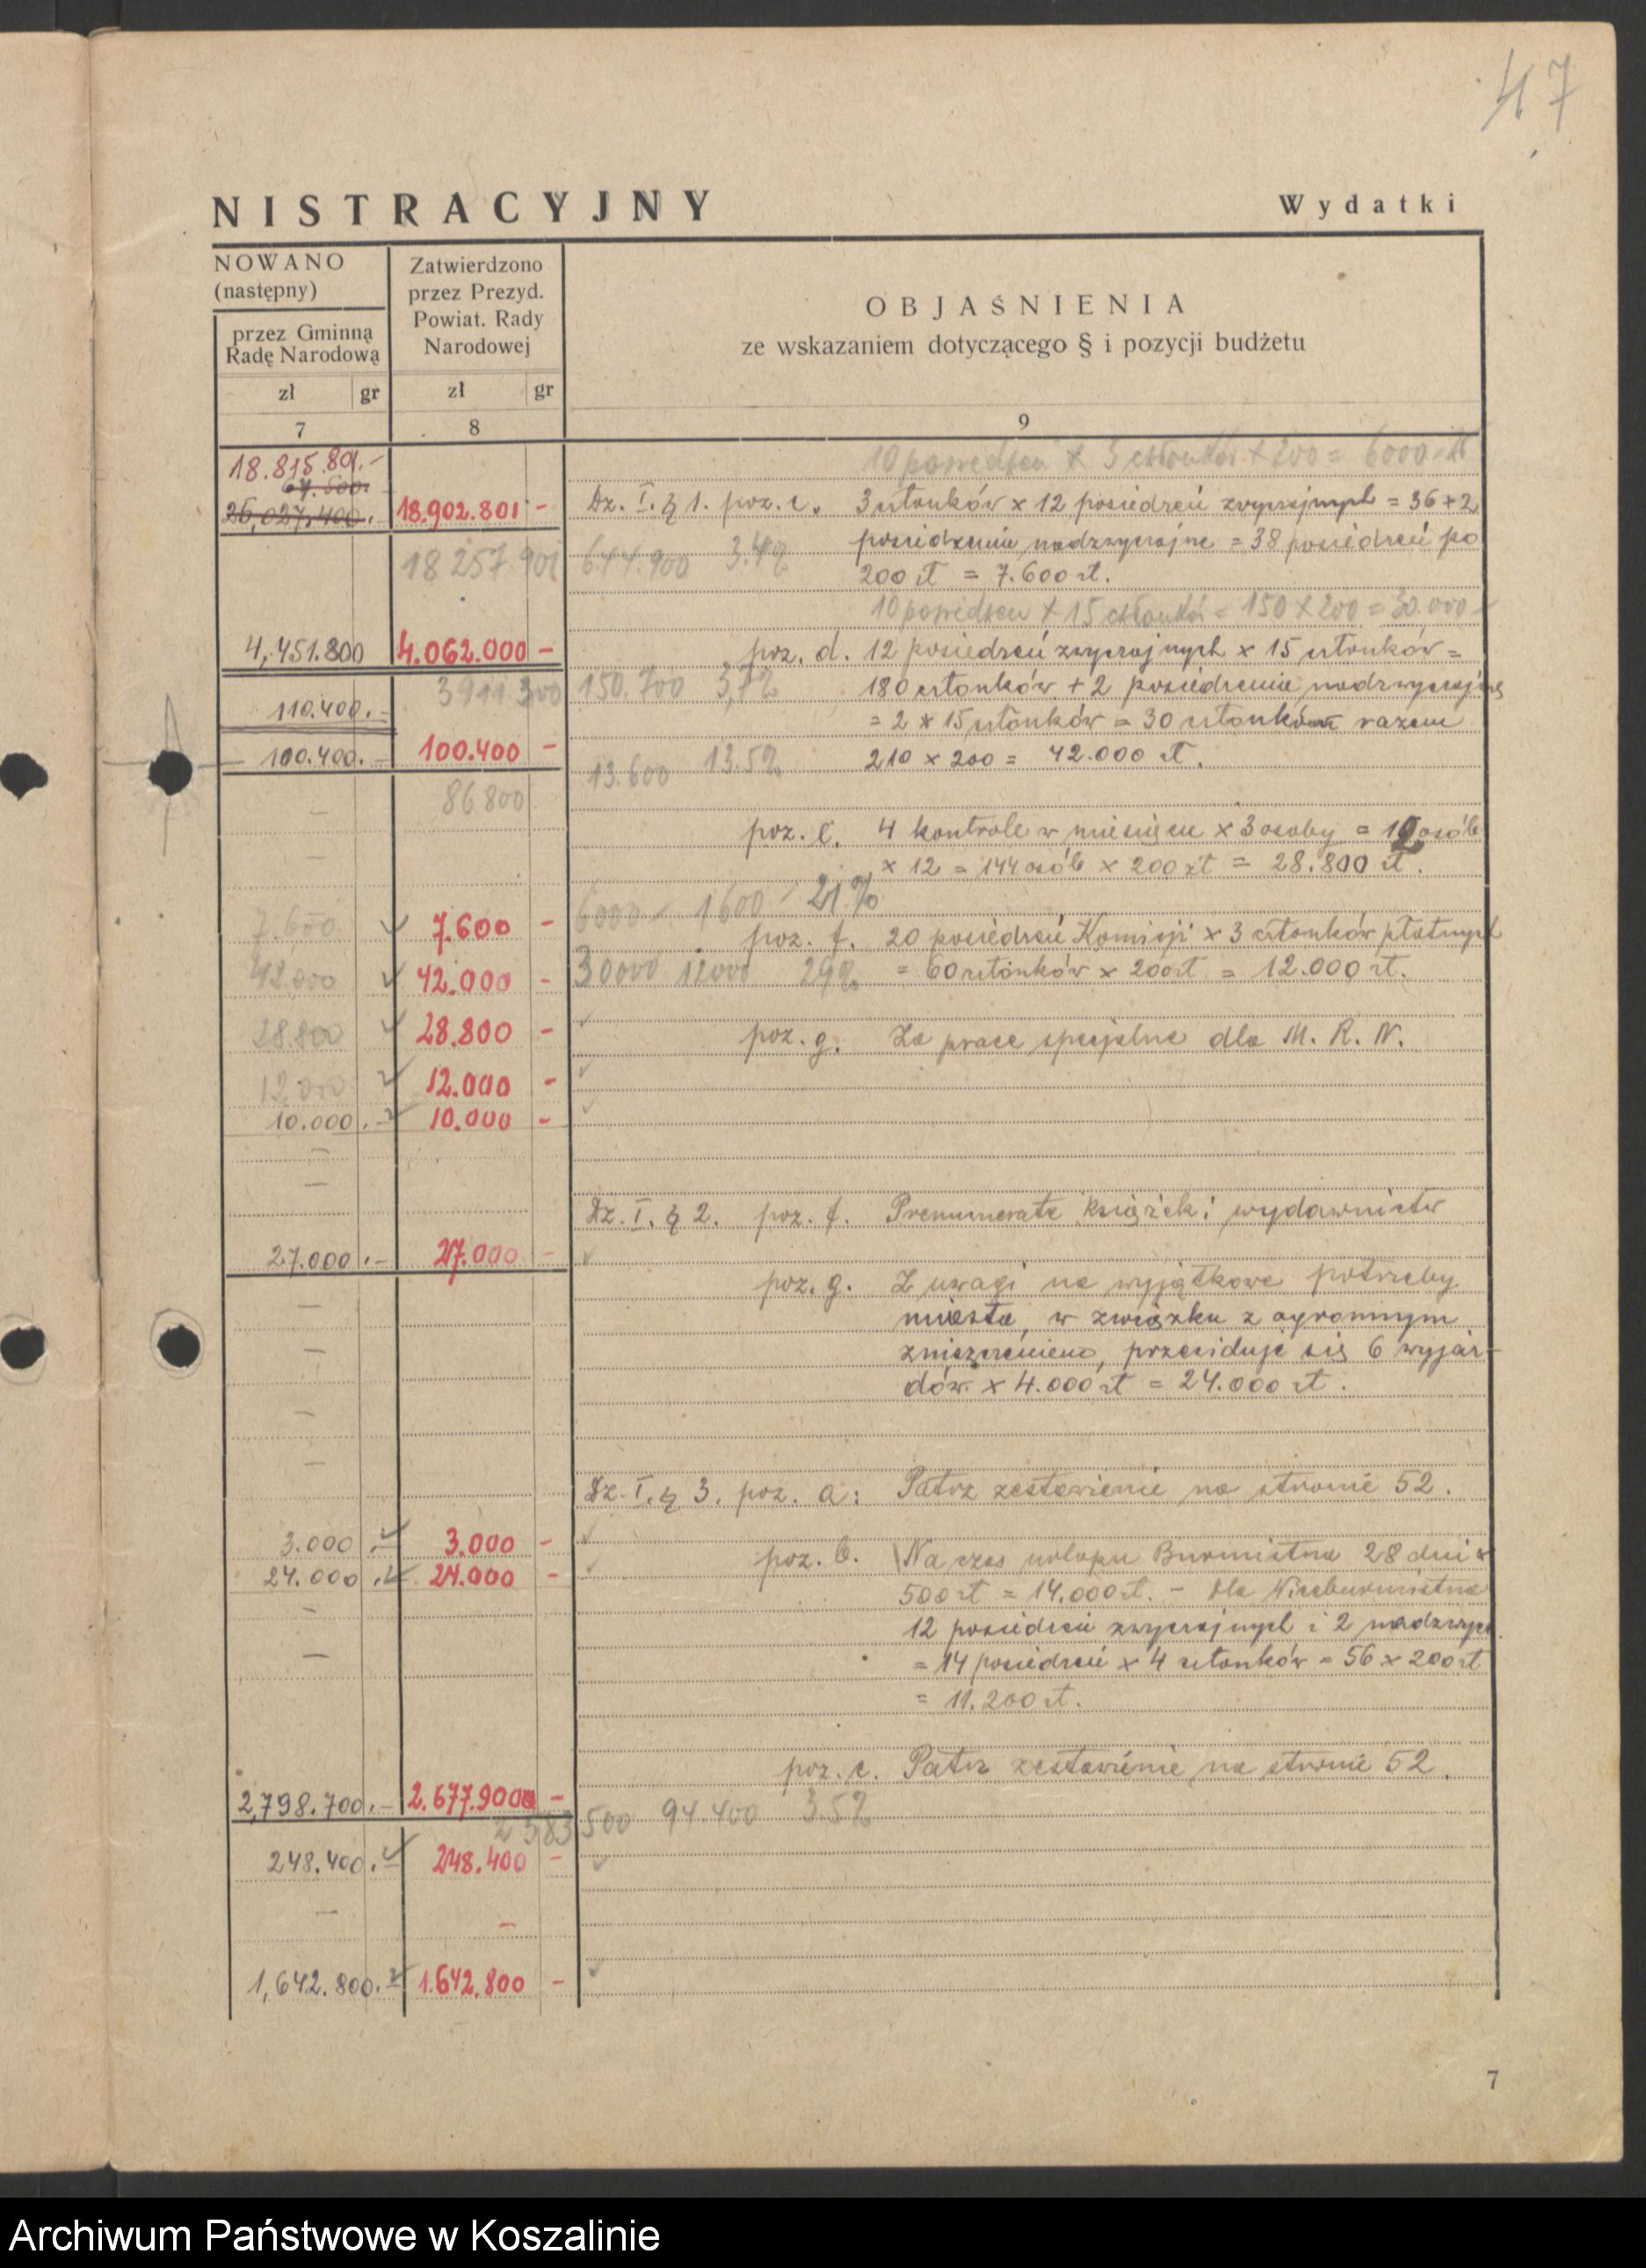 47
NISTRACYJNY
Wydatki
NOWANO
(następny)
przez Gminną
Radę Narodową
zł gr
7
Zatwierdzono
przez Prezyd.
Powiat. Rady
Narodowej
zł gr
8
OBJAŚNIENIA
ze wskazaniem dotyczącego § i pozycji budżetu
9
10 posiedzeń x 3 członków x 200 = 6000 zł
18.815.801.-
26,027,400.- 18.902.801 - Dz. I. § 1. poz. c. 3 członków x 12 posiedzeń zwyczajnych = 36 + 2
18 257 901 644.900 3.4% posiedzenia nadzwyczajne = 38 posiedzeń po
200 zł = 7.600 zł.
10 posiedzeń x 15 członków = 150 x 200 = 30.000 -
4,451.800 4.062.000 - poz. d. 12 posiedzeń zwyczajnych x 15 członków =
3911.300 150.700 3,7% 180 członków + 2 posiedzenia nadzwyczajne
110.400.- = 2 x 15 członków = 30 członków razem
100.400.- 100.400 - 13.600 13.5% 210 x 200 = 42.000 zł.
- 86 800
poz. e. 4 kontrole w miesiącu x 3 osoby = 12 osób
- x 12 = 144 osób x 200 zł = 28.800 zł.
7.600 7.600 - 6000 - 1600 - 21%
poz. f. 20 posiedzeń Komisji x 3 członków płatnych
42.000 42.000 - 30000 12000 29% = 60 członków x 200 zł = 12.000 zł.
28.800 28.800 - poz. g. Za prace specjalne dla M. R. N.
12.000 12.000 -
10.000.- 10.000 -
-
-
Dz. I. § 2. poz. f. Prenumerata książek i wydawnictw
27.000.- 27.000 -
poz. g. Z uwagi na wyjątkowe potrzeby
- miasta, w związku z ogromnym
- zniszczeniem, przewiduje się 6 wyjaz-
dów x 4.000 zł = 24.000 zł.
-
-
Dz. I. § 3. poz. a: Patrz zestawienie na stronie 52.
3.000.- 3.000 - poz. b. Na czas urlopu Burmistrza 28 dni x
24.000.- 24.000 - 500 zł = 14.000 zł. - Dla Wiceburmistrza
- 12 posiedzeń zwyczajnych i 2 nadzwycz.
- = 14 posiedzeń x 4 członków = 56 x 200 zł
= 11.200 zł.
poz. c. Patrz zestawienie na stronie 52.
2,798.700.- 2.677.900 -
2 583 500 94.400 3.5%
248.400.- 248.400 -
- -
1,642.800.- 1.642.800 -
7
Archiwum Państwowe w Koszalinie